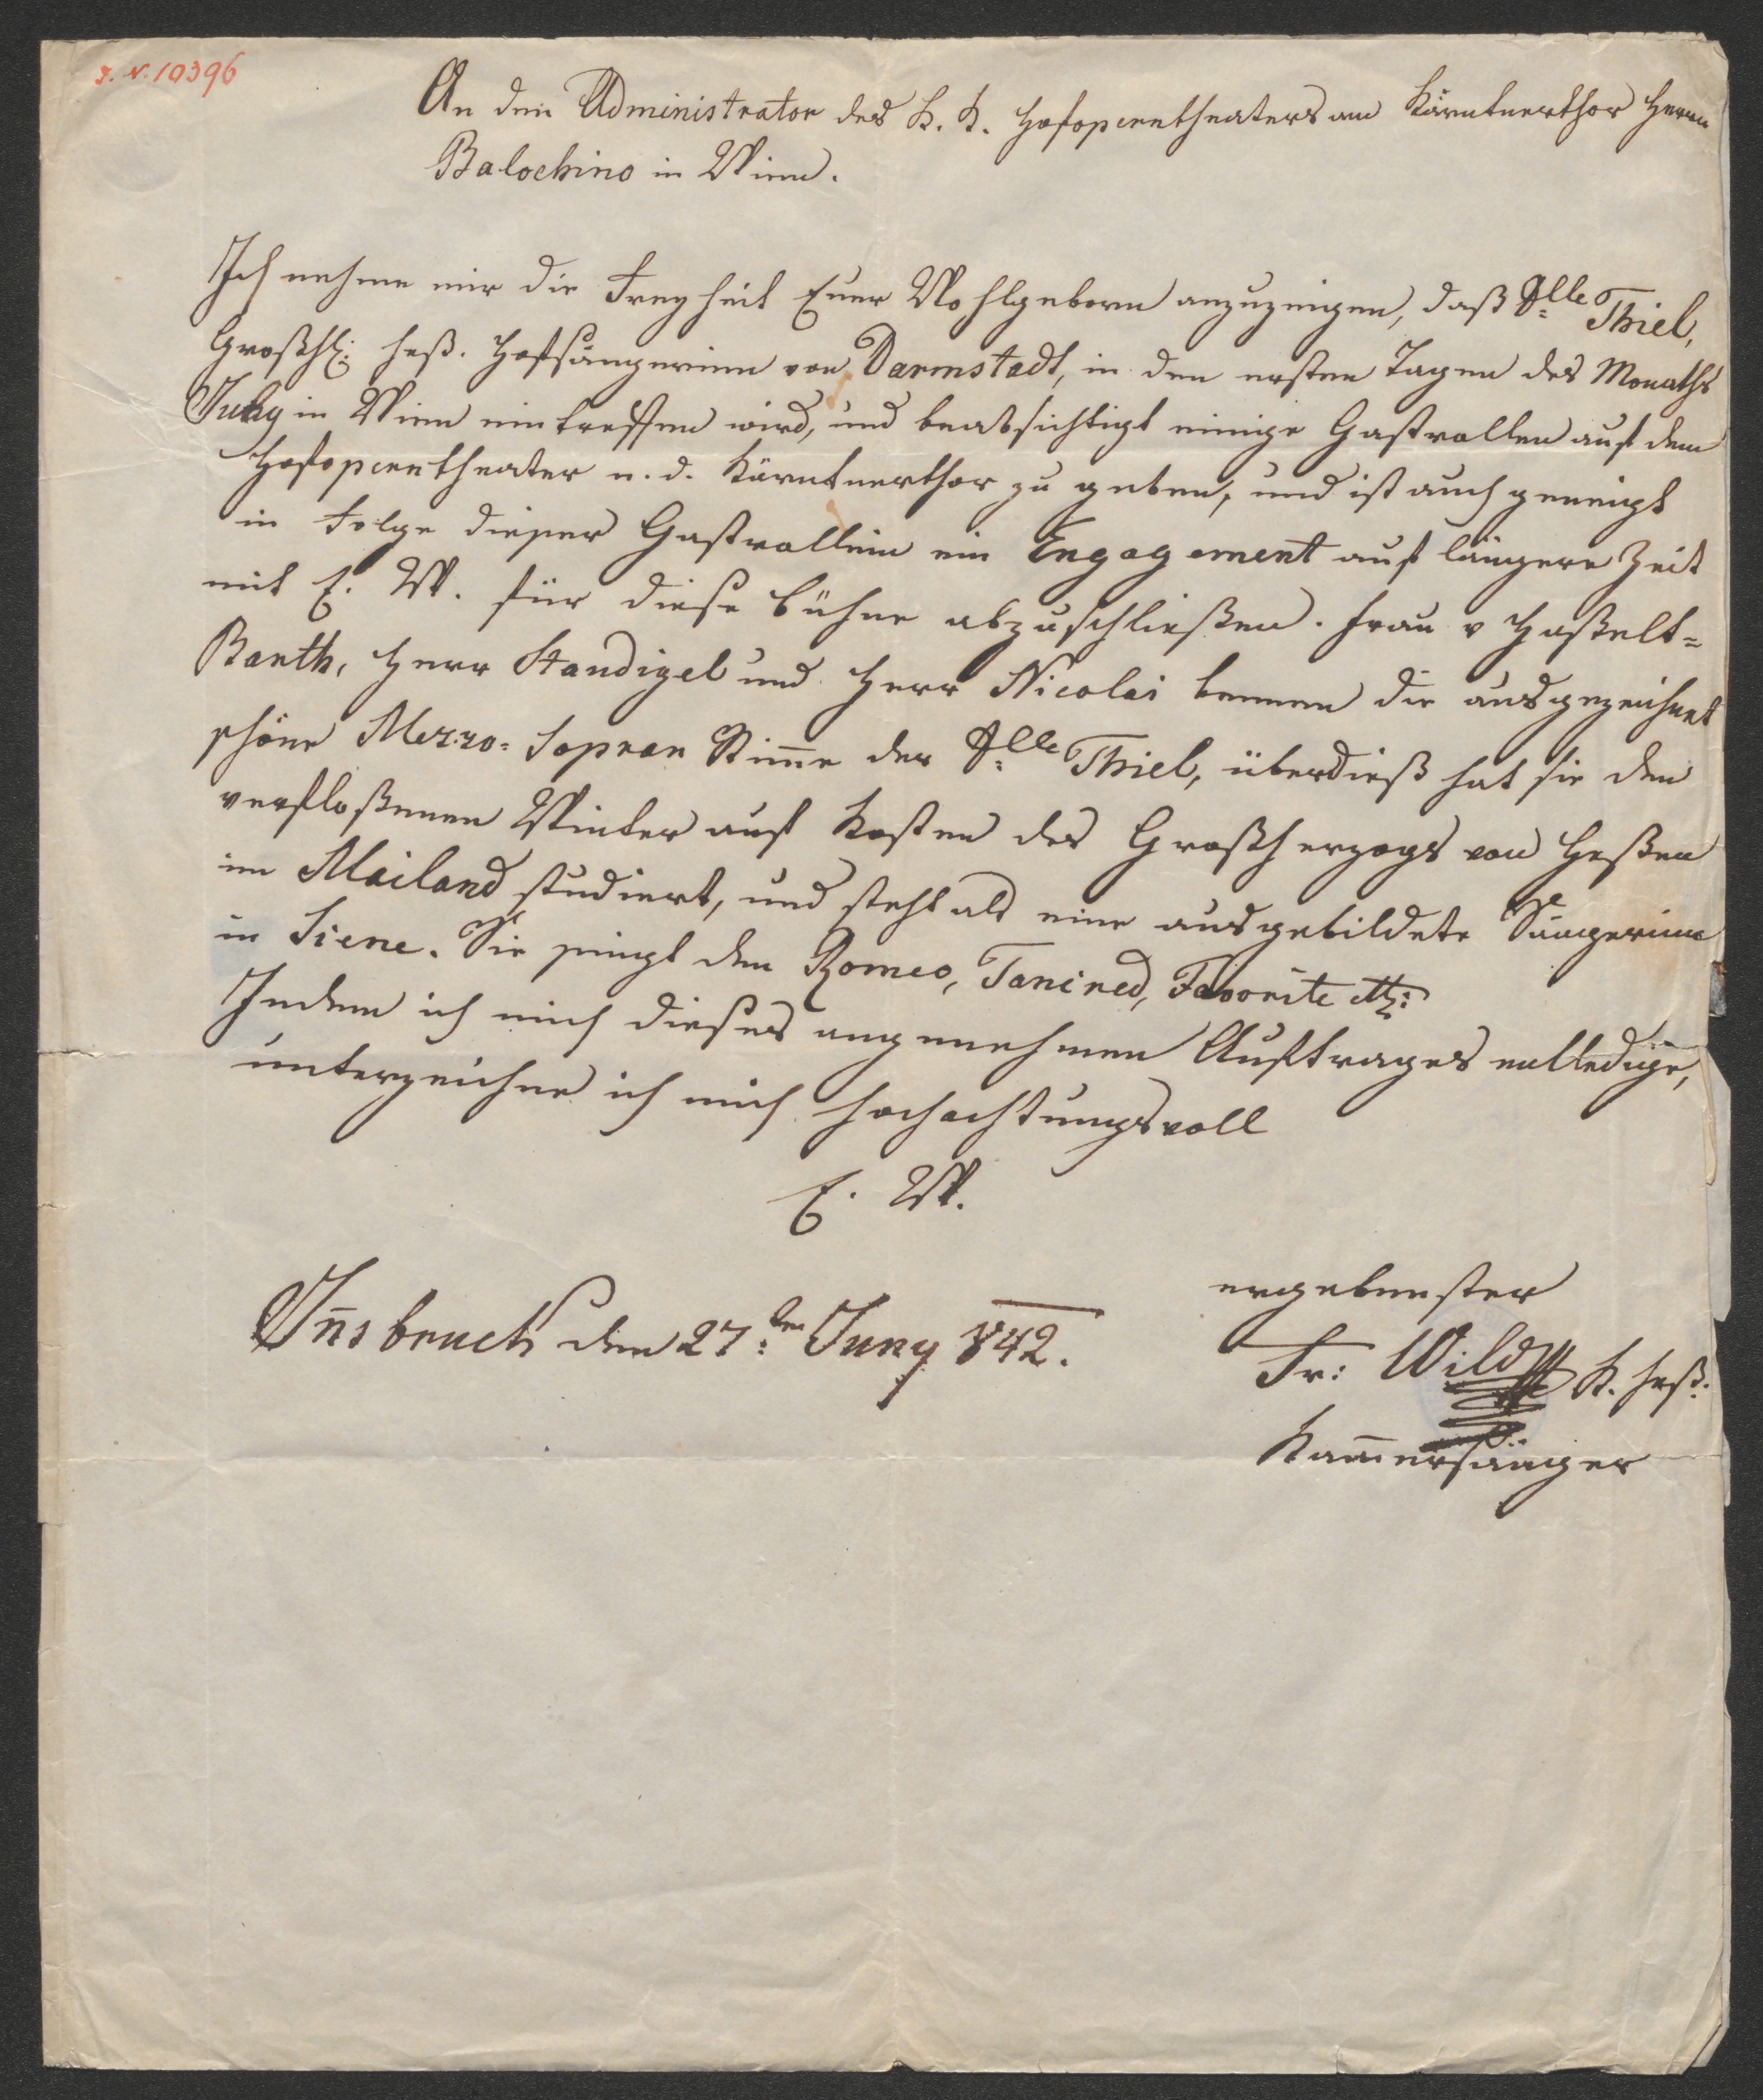 J. N. 10396
An den Administrator des K. K. Hofoperntheaters am Kärntnerthor Herrn
Balochino in Wien.
Ich nehme mir die Freyheit Euer Wohlgeborn anzuzeigen, daß Dlle Thiel,
Großhl: heß. Hofsängerinn von Darmstadt, in den ersten Tagen des Monaths
July in Wien eintreffen wird, und beabsichtigt einige Gastrollen auf dem
Hofoperntheater n. d. Kärntnerthor zu geben, und ist auch geneigt
in Folge dieser Gastrollen ein Engagement auf längere Zeit
mit E. W. für diese Bühne abzuschließen. Frau v Haßelt=
Barth, Herr Staudigel und Herr Nicolai kennen die ausgezeichnet
schöne Mezzo=Sopran Stim̅e der Dlle Thiel, überdieß hat sie den
verfloßenen Winter auf Kosten des Großherzogs von Heßen
im Mailand studiert, und steht als eine ausgebildete Sängerinn
in Scene. Sie singt den Romeo, Tancred, Favorite etz:
Indem ich mich dieses angenehmen Auftrages entledige,
unterzeichne ich mich hochachtungsvoll
E. W.
ergebenster
In̅sbruck den 27:ten Juny 842.
Fr: Wild K. heß.
Kam̅ersänger